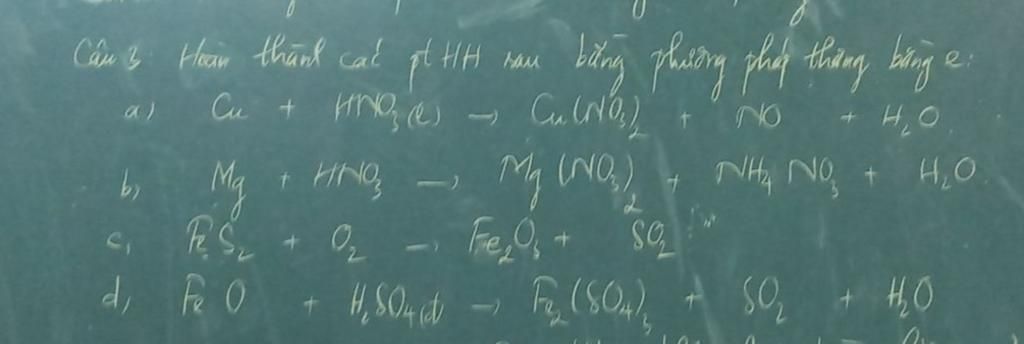 Câu 3 Hoàn thành các pt HH sau bằng phương pháp thăng bằng e:
a) Cu + HNO₃(l) → Cu(NO₃)₂ + NO + H₂O
b, Mg + HNO₃ → Mg(NO₃)₂ + NH₄NO₃ + H₂O
c, FeS₂ + O₂ → Fe₂O₃ + SO₂
d, FeO + H₂SO₄(đ) → Fe₂(SO₄)₃ + SO₂ + H₂O